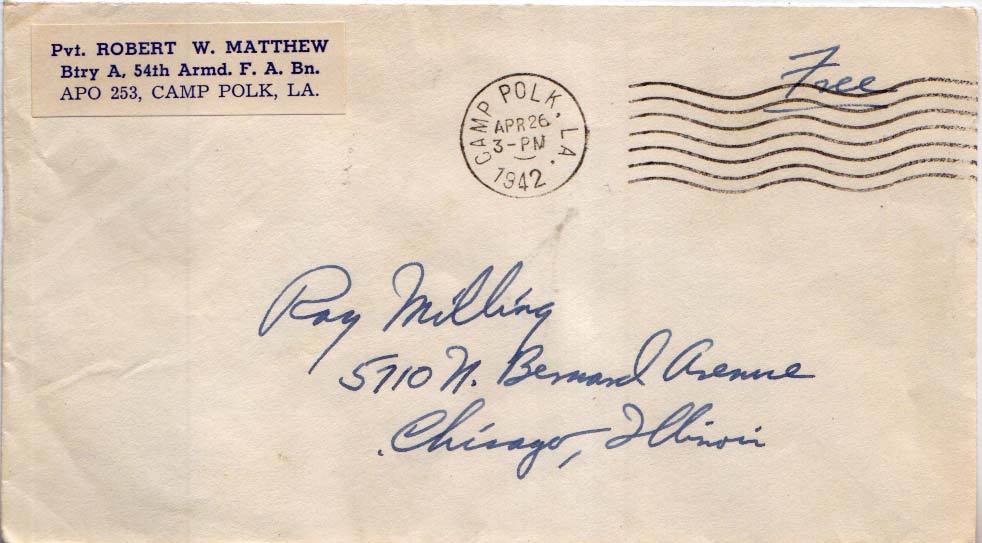 Pvt. ROBERT W. MATTHEW
Btry A, 54th Armd. F. A. Bn.
APO 253, CAMP POLK, LA.
CAMP POLK, LA.
APR 26
3-PM
1942
Free
Ray Milling
5710 N. Bernard Avenue
Chicago, Illinois